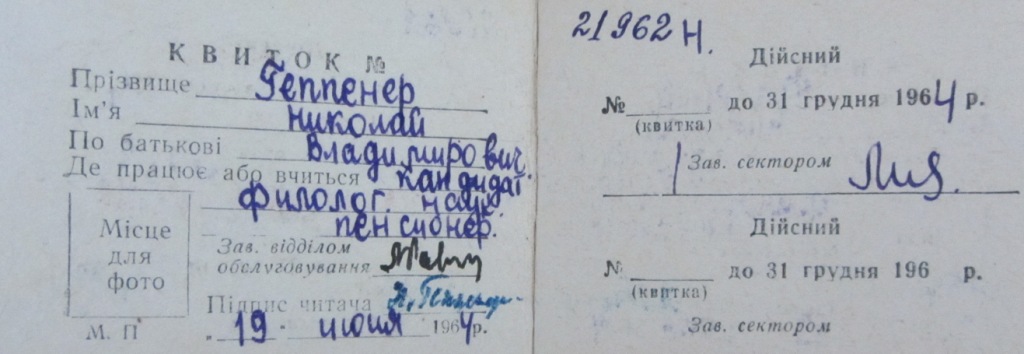 КВИТОК №
Прізвище Геппенер
Ім'я Николай
По батькові Владимирович
Де працює або вчиться кандидат
филолог. наук.
пенсионер.
Місце
для
фото
Зав. відділом
обслуговування
Підпис читача Н. Геппенер
М. П. „19" июня 1964 р.
21962 н.
Дійсний
№ до 31 грудня 1964 р.
(квитка)
Зав. сектором
Дійсний
№ до 31 грудня 196 р.
(квитка)
Зав. сектором